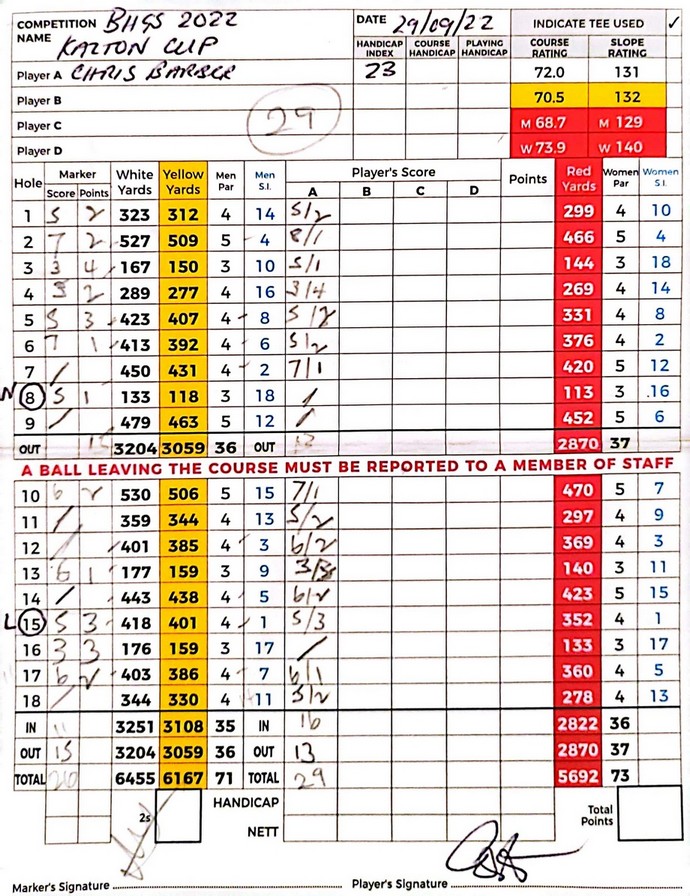 COMPETITION NAME BHGS 2022 DATE 29/09/22 INDICATE TEE USED ✓
KALTON CUP HANDICAP INDEX COURSE HANDICAP PLAYING HANDICAP COURSE RATING SLOPE RATING
Player A CHRIS BARBER 23 72.0 131
Player B 70.5 132
Player C 29 M 68.7 M 129
Player D W 73.9 W 140
Hole Marker White Yards Yellow Yards Men Par Men S.I. Player's Score Points Red Yards Women Par Women S.I.
Score Points A B C D
1 5 2 323 312 4 14 5/2 299 4 10
2 7 2 527 509 5 4 8/1 466 5 4
3 3 4 167 150 3 10 5/1 144 3 18
4 3 2 289 277 4 16 3/4 269 4 14
5 5 3 423 407 4 8 5/2 331 4 8
6 7 1 413 392 4 6 5/2 376 4 2
7 / 450 431 4 2 7/1 420 5 12
N 8 5 1 133 118 3 18 / 113 3 .16
9 / 479 463 5 12 / 452 5 6
OUT 15 3204 3059 36 OUT 13 2870 37
A BALL LEAVING THE COURSE MUST BE REPORTED TO A MEMBER OF STAFF
10 6 2 530 506 5 15 7/1 470 5 7
11 / 359 344 4 13 5/2 297 4 9
12 / 401 385 4 3 6/2 369 4 3
13 6 1 177 159 3 9 3/3 140 3 11
14 / 443 438 4 5 6/2 423 5 15
L 15 5 3 418 401 4 1 5/3 352 4 1
16 3 3 176 159 3 17 / 133 3 17
17 6 2 403 386 4 7 6/1 360 4 5
18 / 344 330 4 11 5/2 278 4 13
IN 11 3251 3108 35 IN 16 2822 36
OUT 15 3204 3059 36 OUT 13 2870 37
TOTAL 26 6455 6167 71 TOTAL 29 5692 73
2s HANDICAP Total Points
NETT
Marker's Signature Player's Signature